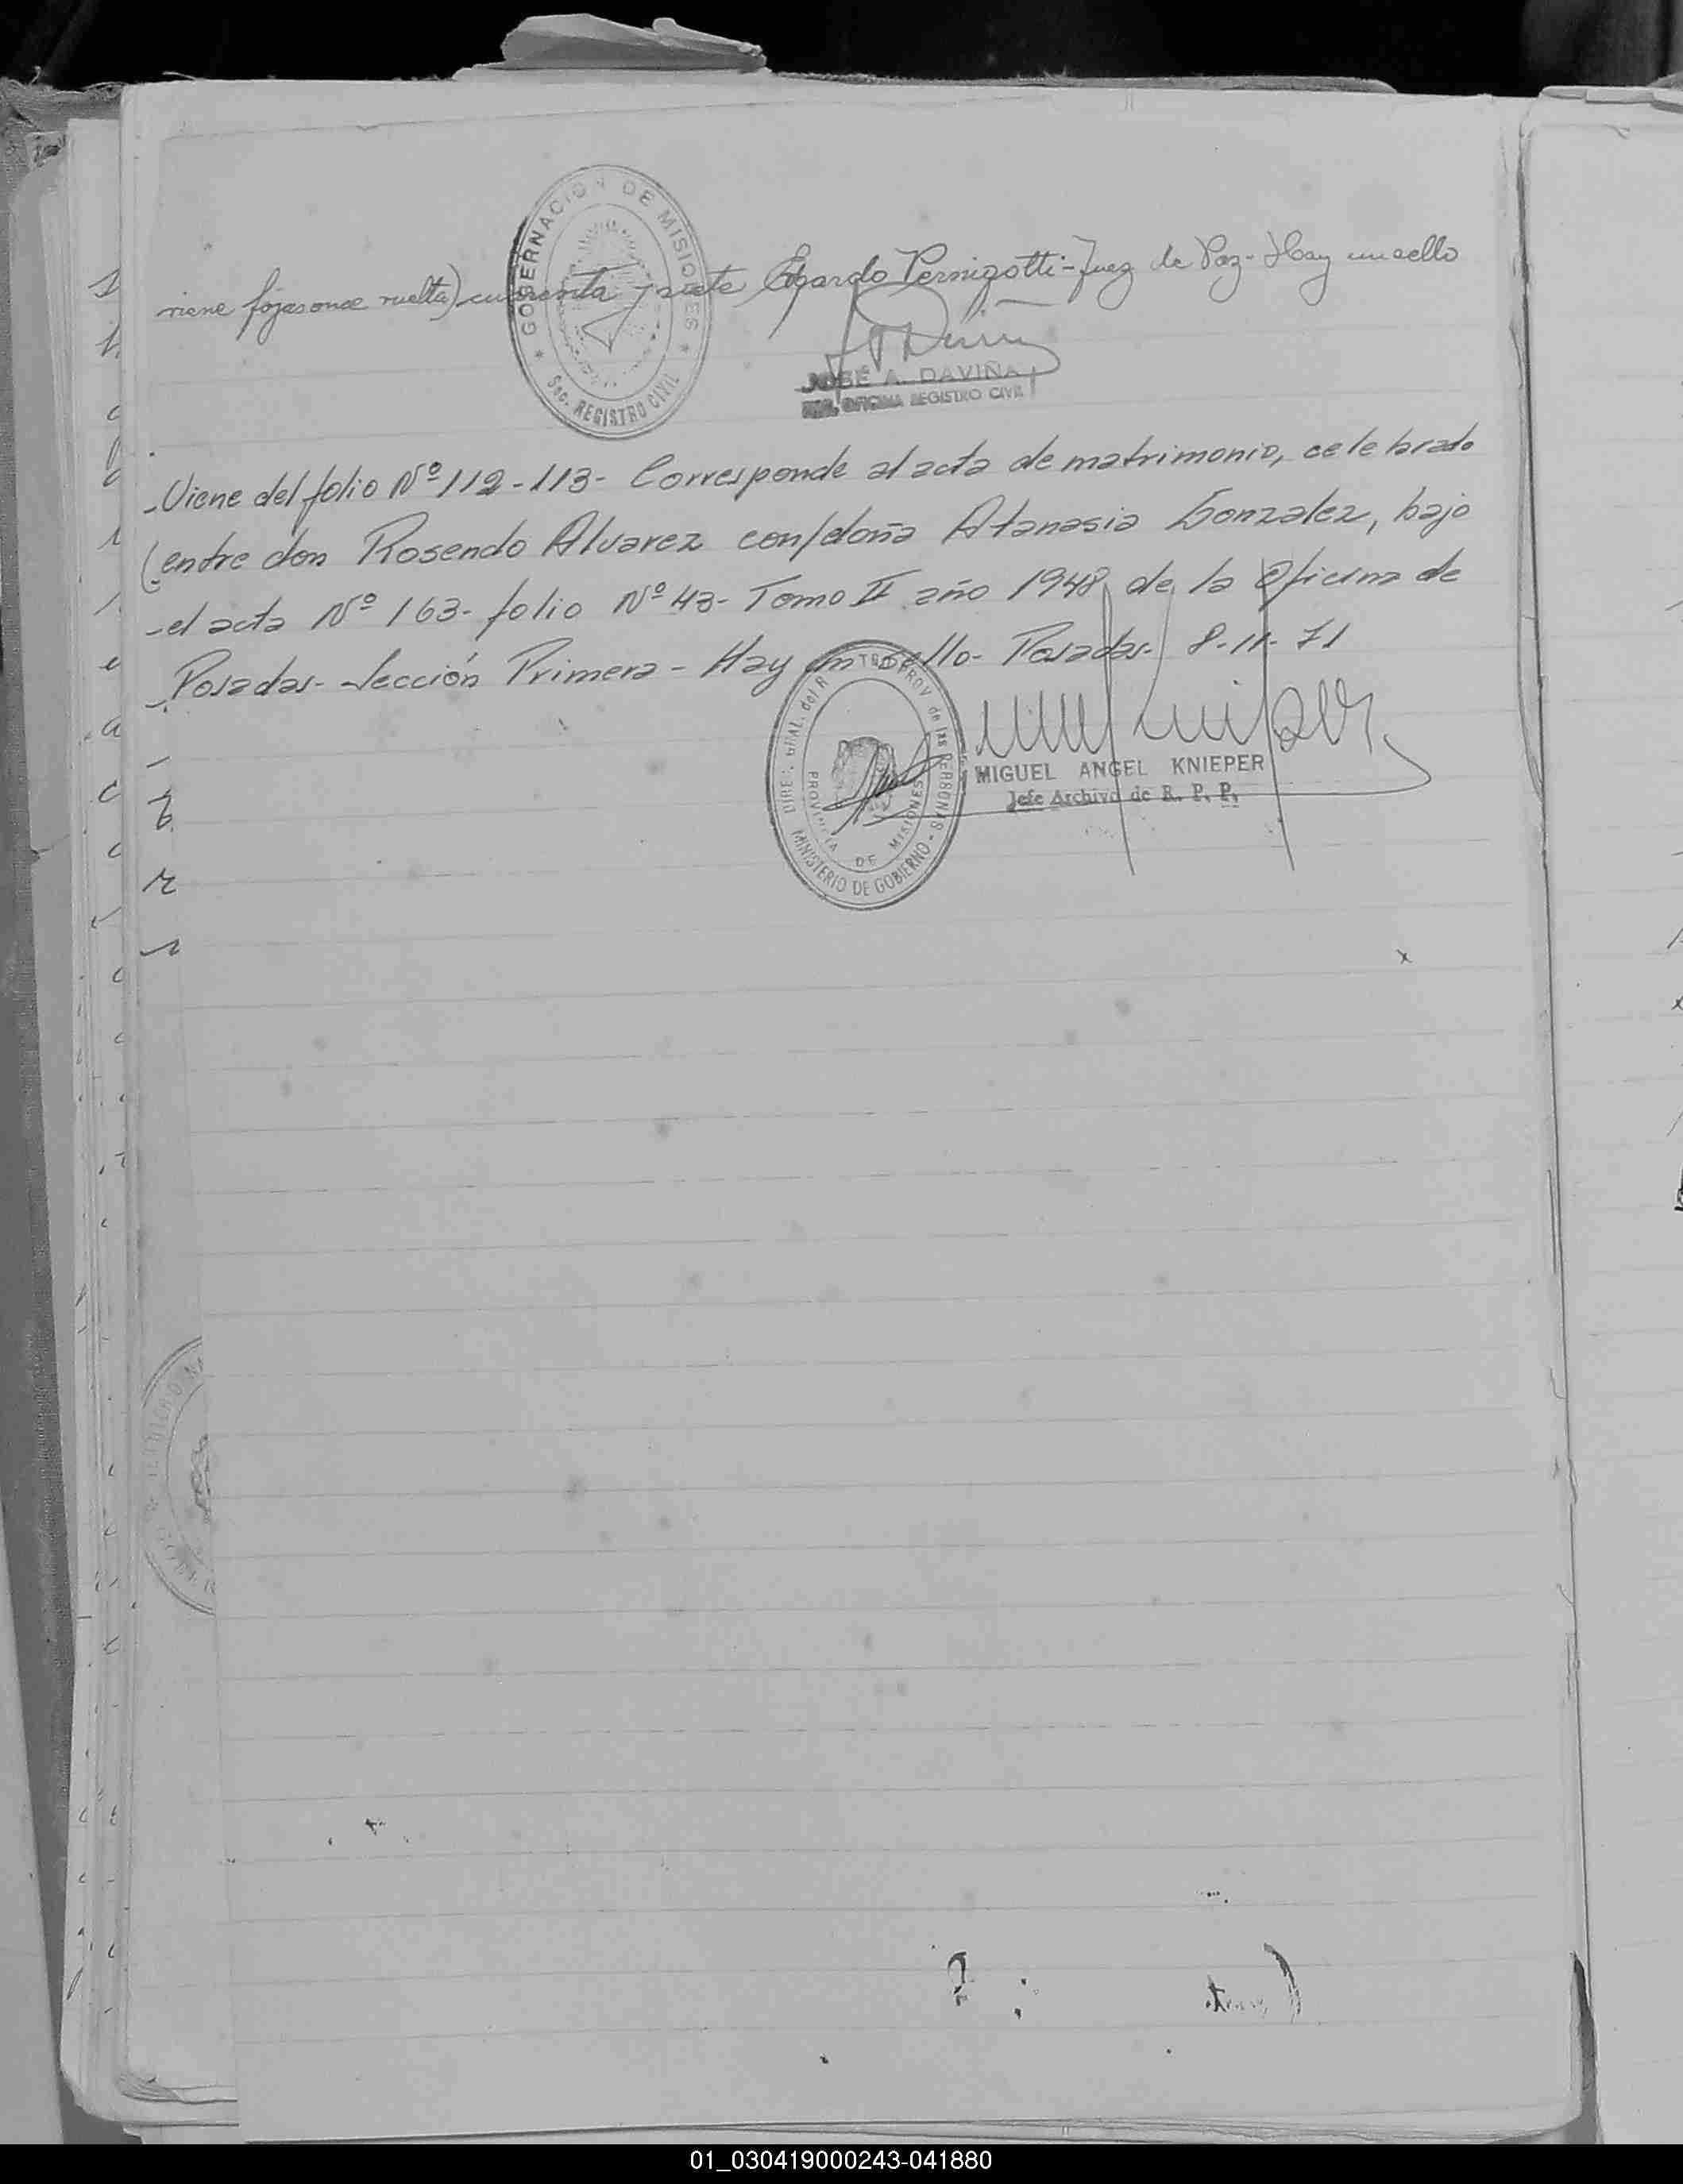 viene fojas once vuelta) cuarenta y siete Edgardo Pernigotti - Juez de Paz - Hay un sello
GOBERNACION DE MISIONES
Sec. REGISTRO CIVIL
JOSÉ A. DAVIÑA
OFICINA REGISTRO CIVIL
- Viene del folio Nº 112 - 113 - Corresponde al acta de matrimonio, celebrado
(entre don Rosendo Alvarez con/doña Atanasia Gonzalez, bajo
- el acta Nº 163 - folio Nº 43 - Tomo II año 1948, de la Oficina de
- Posadas - Sección Primera - Hay un sello - Posadas - 8-11-71
DIREC. GRAL. del R PROV. de las PERSONAS
MINISTERIO DE GOBIERNO
PROVINCIA DE MISIONES
MIGUEL ANGEL KNIEPER
Jefe Archivo de R. P. P.
01_030419000243-041880